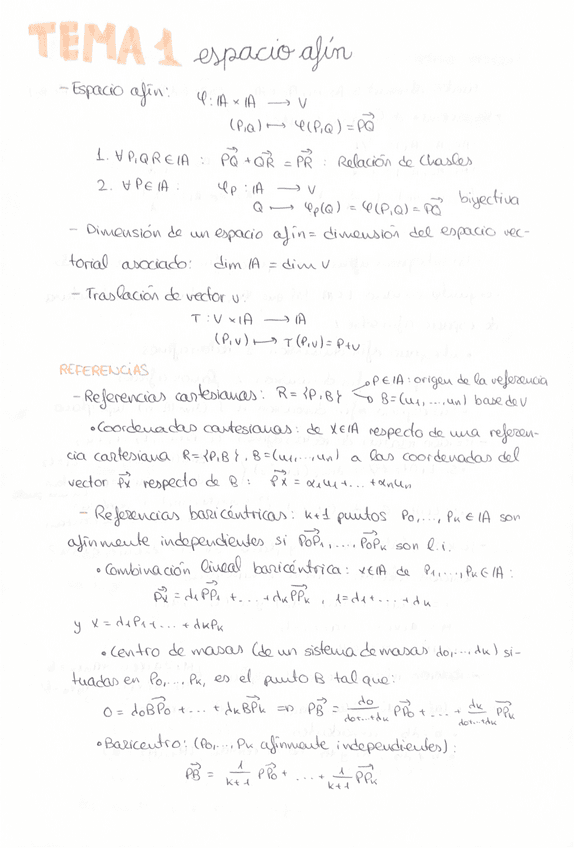 TEMA 1 espacio afín
- Espacio afín: φ: A × A → V
(P,Q) ↦ φ(P,Q) = PQ⃗
1. ∀ P,Q,R ∈ A : PQ⃗ + QR⃗ = PR⃗ : Relación de Chasles
2. ∀ P ∈ A : φp : A → V
Q ↦ φp(Q) = φ(P,Q) = PQ⃗ biyectiva
- Dimensión de un espacio afín = dimensión del espacio vec-
torial asociado: dim A = dim V
- Traslación de vector v:
T : V × A → A
(P,v) ↦ T(P,v) = P+v
REFERENCIAS
- Referencias cartesianas: R = {P,B} P ∈ A : origen de la referencia
B = (u1, ..., un) base de V
• Coordenadas cartesianas: de X ∈ A respecto de una referen-
cia cartesiana R = {P,B}, B = (u1, ..., un) a las coordenadas del
vector PX⃗ respecto de B : PX⃗ = α1u1 + ... + αnun
- Referencias baricéntricas: k+1 puntos P0, ..., Pk ∈ A son
afinmente independientes si P0P1⃗, ..., P0Pk⃗ son l.i.
• Combinación lineal baricéntrica: x ∈ A de P1, ..., Pk ∈ A :
PX⃗ = d1PP1⃗ + ... + dkPPk⃗, 1 = d1 + ... + dk
y X = d1P1 + ... + dkPk
• Centro de masas (de un sistema de masas d0, ..., dk) si-
tuadas en P0, ..., Pk, es el punto B tal que:
0 = d0BP0⃗ + ... + dkBPk⃗ ⇒ PB⃗ = d0/(d0+...+dk) PP0⃗ + ... + dk/(d0+...+dk) PPk⃗
• Baricentro: (P0, ..., Pk afinmente independientes) :
PB⃗ = 1/(k+1) PP0⃗ + ... + 1/(k+1) PPk⃗